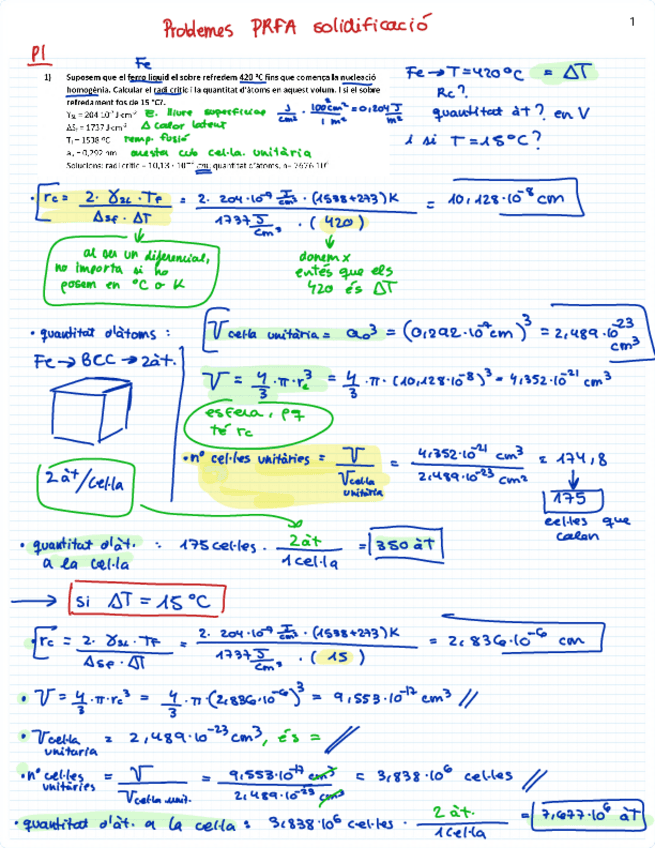 Problemes PRFA solidificació
1
P1
Fe
1) Suposem que el ferro líquid el sobre refredem 420 °C fins que comença la nucleació
homogènia. Calcular el radi crític i la quantitat d'àtoms en aquest volum. I si el sobre
refredament fos de 15 °C?.
E. lliure superfície
Δ calor latent
temp. fusió
aresta cub cel·la. unitària
J/cm² · 100²cm²/1 m² = 0,204 J/m²
Fe → T=420°C = ΔT
Rc?
quantitat àt? en V
i si T=15°C?
· rc = 2·γSL·Tf / ΔSf·ΔT = 2·204·10⁻⁷ J/cm² · (1538+273)K / 1737 J/cm³ · (420) = 10,128·10⁻⁸ cm
al ser un diferencial,
no importa si ho
posem en °C o K
donem x
entés que els
420 és ΔT
· quantitat d'àtoms :
Fe → BCC → 2àt.
2 àt/cel·la
V cel·la unitària = a₀³ = (0,292·10⁻⁷cm)³ = 2,489·10⁻²³ cm³
V = 4/3·π·rc³ = 4/3·π·(10,128·10⁻⁸)³ = 4,352·10⁻²¹ cm³
esfera, pq
té rc
· nº cel·les unitàries = V / V cel·la unitària = 4,352·10⁻²¹ cm³ / 2,489·10⁻²³ cm³ = 174,8
175
cel·les que
calen
· quantitat d'àt. a la cel·la : 175 cel·les · 2àt / 1 cel·la = 350 àT
→ si ΔT = 15°C
· rc = 2·γSL·Tf / ΔSf·ΔT = 2·204·10⁻⁷ J/cm² · (1538+273)K / 1737 J/cm³ · (15) = 2,836·10⁻⁶ cm
· V = 4/3·π·rc³ = 4/3·π·(2,836·10⁻⁶)³ = 9,553·10⁻¹⁷ cm³ //
· V cel·la unitaria = 2,489·10⁻²³ cm³, és = //
· nº cel·les unitàries = V / V cel·la unit. = 9,553·10⁻¹⁷ cm³ / 2,489·10⁻²³ cm³ = 3,838·10⁶ cel·les //
· quantitat d'àt. a la cel·la : 3,838·10⁶ cel·les · 2 àt. / 1 cel·la = 7,677·10⁶ àT